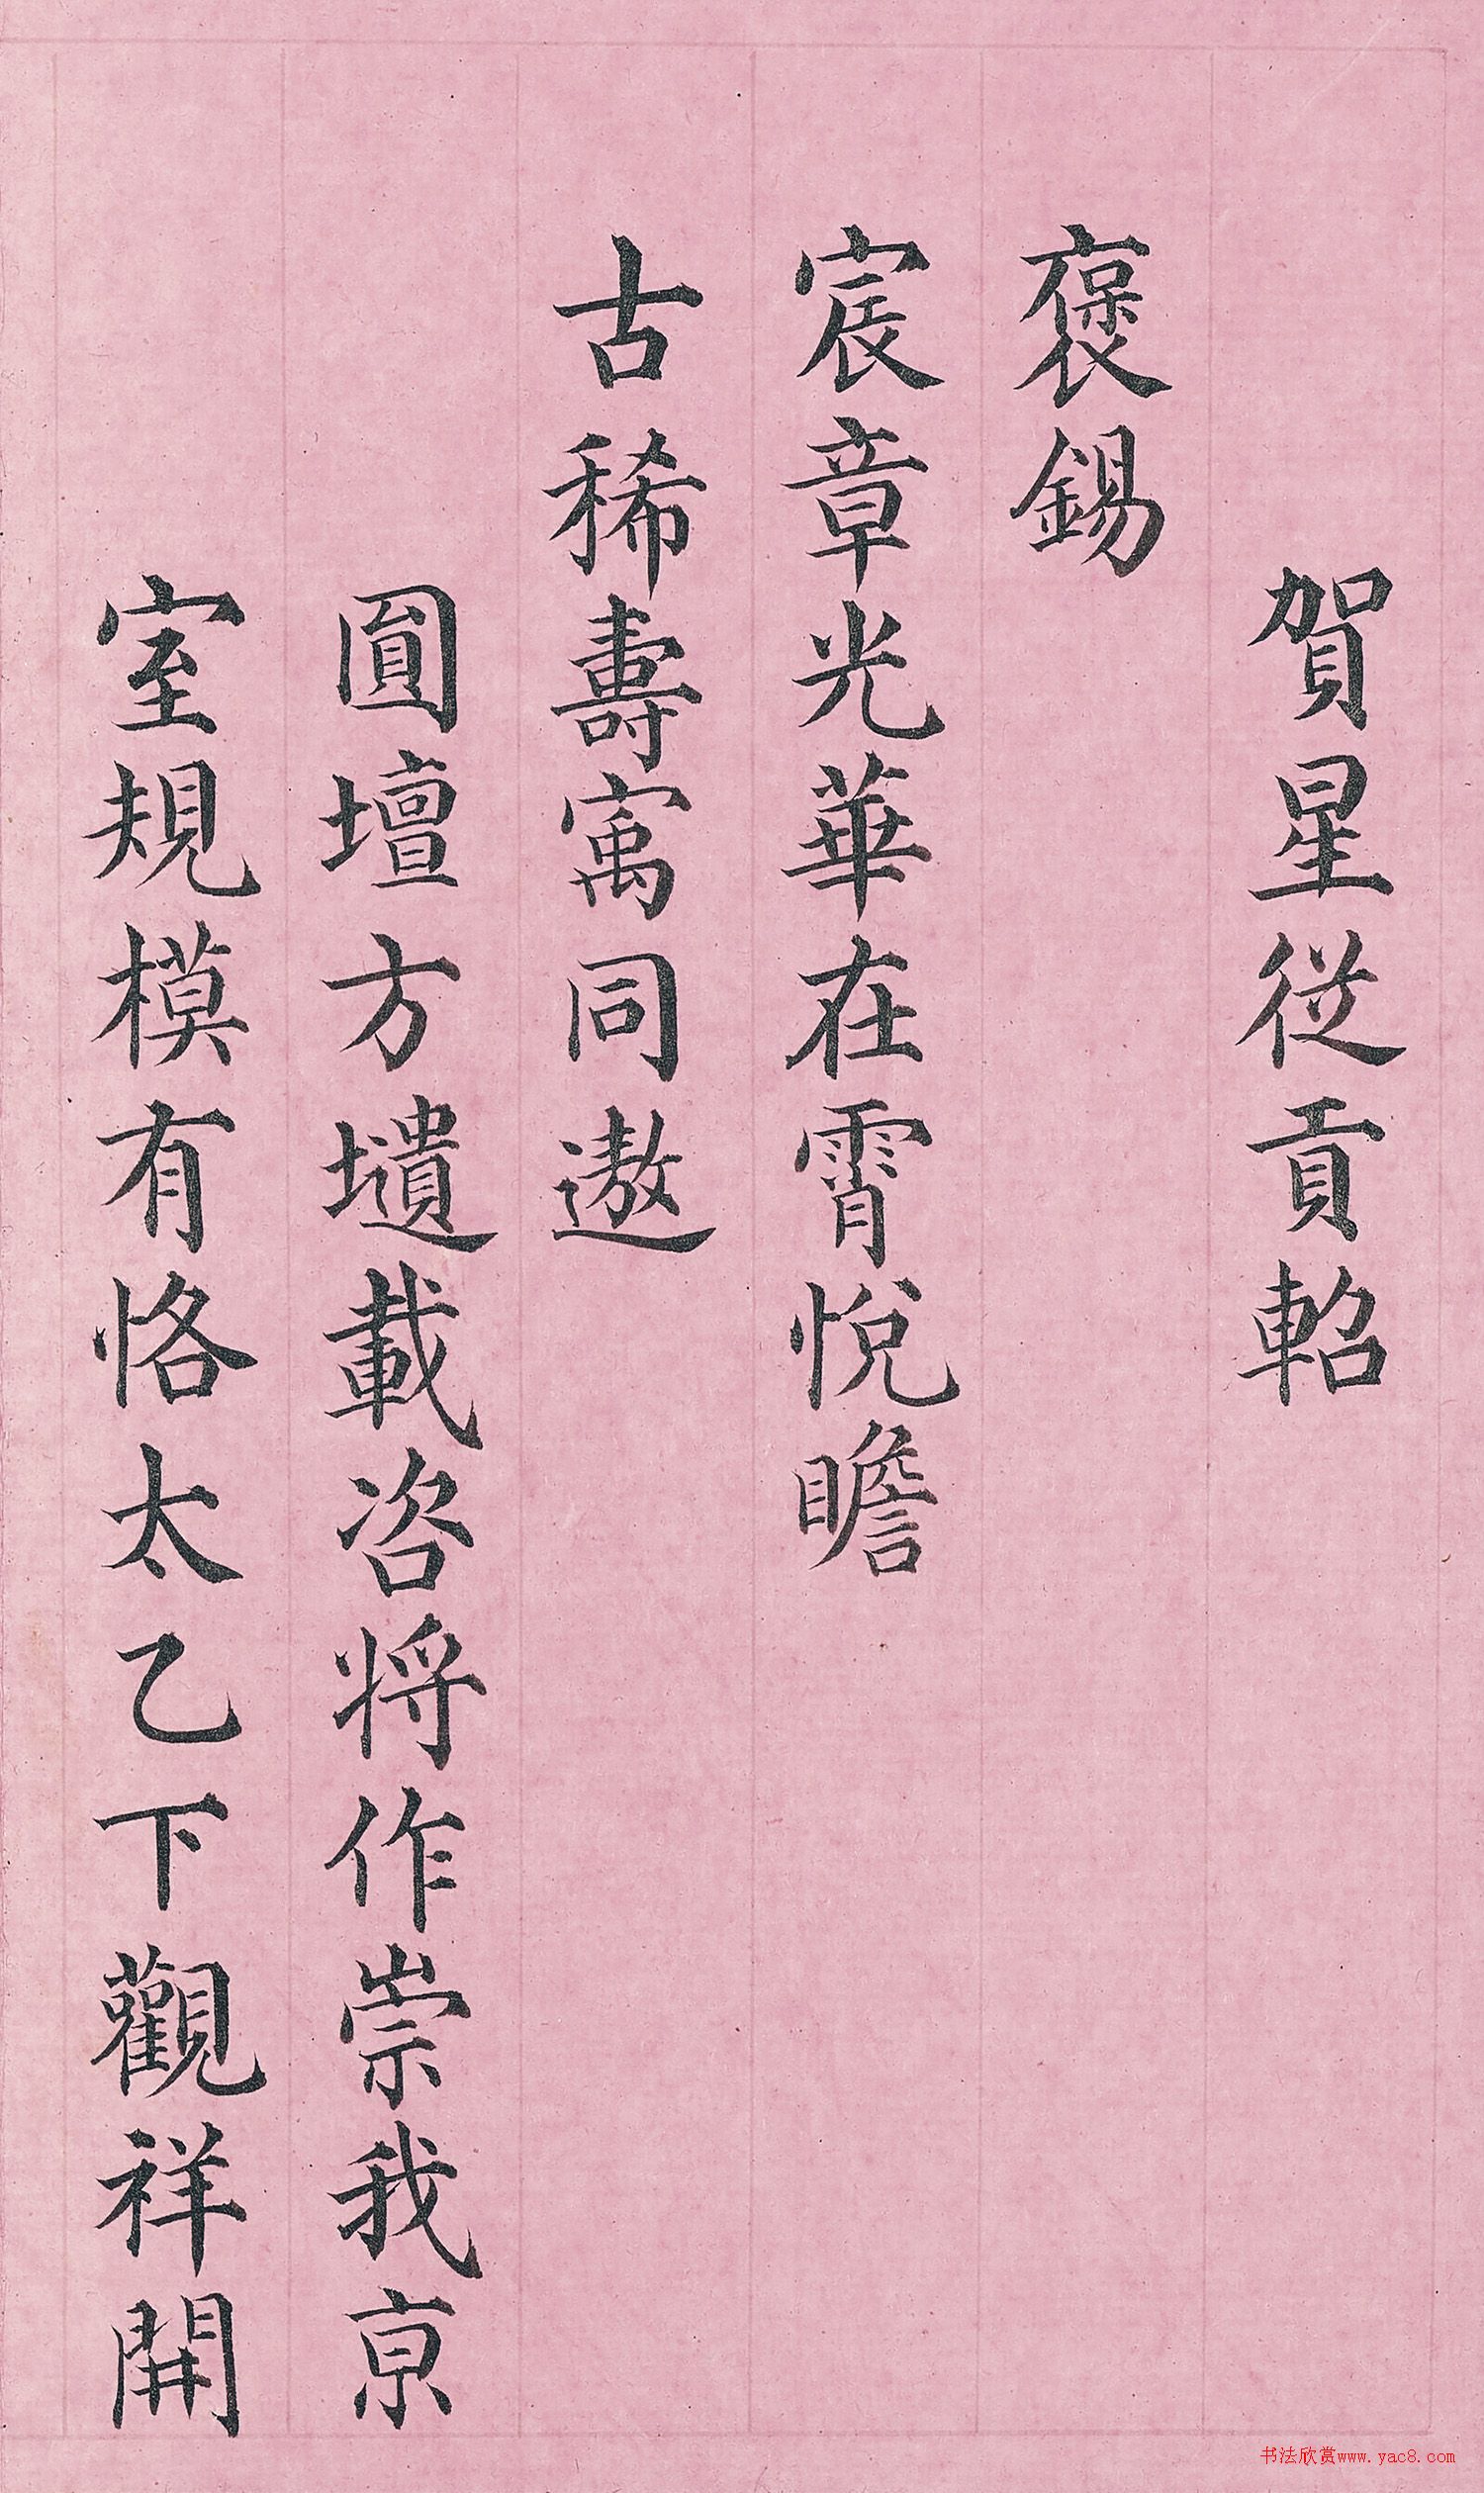 賀星從貢軺
褒錫
宸章光華在霄悅瞻
古稀壽寓同遨
圓壇方壝載咨將作崇我京
室規模有恪太乙下觀祥開
书法欣赏www.yac8.com